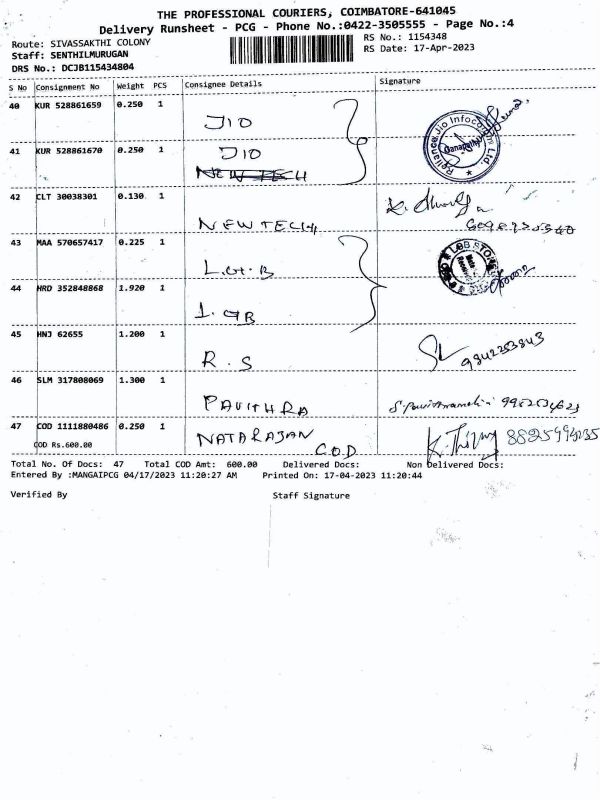 THE PROFESSIONAL COURIERS, COIMBATORE-641045
Delivery Runsheet - PCG - Phone No.:0422-3505555 - Page No.:4
Route: SIVASSAKTHI COLONY
RS No.: 1154348
Staff: SENTHILMURUGAN
RS Date: 17-Apr-2023
DRS No.: DCJB115434804
S No Consignment No Weight PCS Consignee Details Signature
40 KUR 528861659 0.250 1 JIO
Reliance Jio Infocomm Ltd.
41 KUR 528861670 0.250 1 JIO
NEW TECH
42 CLT 30038301 0.130 1 NEWTECH
43 MAA 570657417 0.225 1 L.G.B
44 HRD 352848868 1.920 1 L.GB
45 HNJ 62655 1.200 1 R.S 9842253843
46 SLM 317808069 1.300 1 PAVITHRA
47 COD 1111880486 0.250 1 NATARAJAN
COD Rs.600.00 C.O.D
Total No. Of Docs: 47 Total COD Amt: 600.00 Delivered Docs: Non Delivered Docs:
Entered By :MANGAIPCG 04/17/2023 11:20:27 AM Printed On: 17-04-2023 11:20:44
Verified By Staff Signature